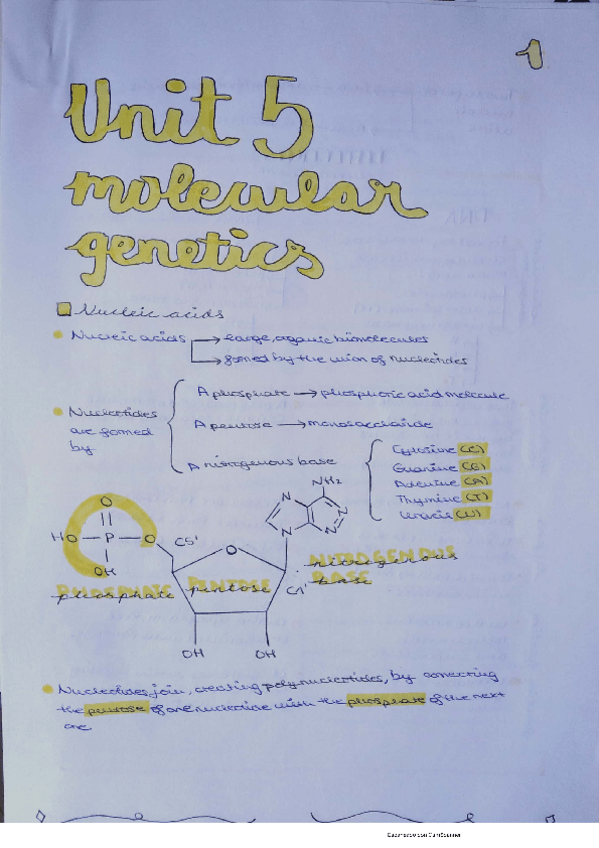 1
Unit 5
molecular
genetics
Nucleic acids
Nucleic acids → large, organic biomolecules
→ formed by the union of nucleotides
Nucleotides are formed by
A phosphate → phosphoric acid molecule
A pentose → monosaccharide
A nitrogenous base
Cytosine (C)
Guanine (G)
Adenine (A)
Thymine (T)
Uracil (U)
NH₂
N
N
N
N
O
HO — P — O
OH
C5'
O
C1'
OH
OH
PHOSPHATE
phosphate
PENTOSE
pentose
NITROGENOUS
nitrogenous
BASE
base
Nucleotides join, creating polynucleotides, by connecting
the pentose of one nucleotide with the phosphate of the next
one
Escaneado con CamScanner